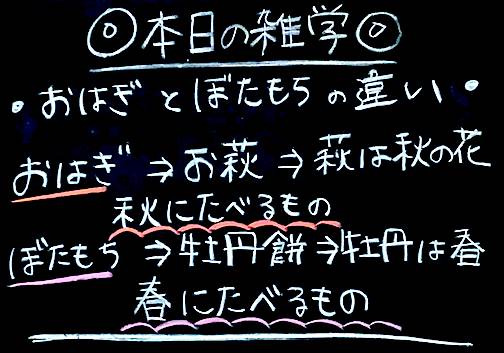 ◎本日の雑学◎
・おはぎとぼたもちの違い・
おはぎ⇒お萩⇒萩は秋の花
秋にたべるもの
ぼたもち⇒牡丹餅⇒牡丹は春
春にたべるもの